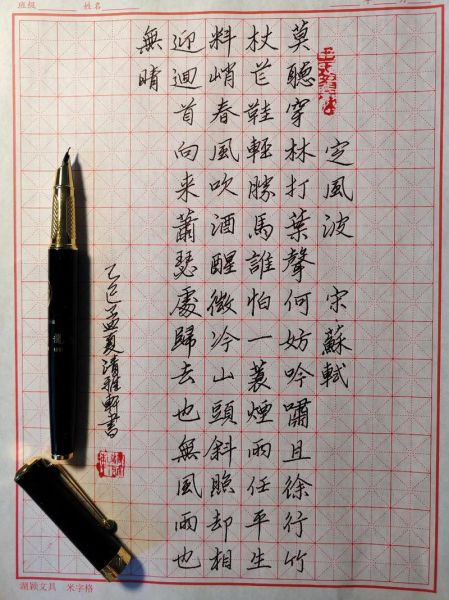 班级 姓名
定風波 宋 蘇軾
莫聽穿林打葉聲何妨吟嘯且徐行竹
杖芒鞋輕勝馬誰怕一蓑煙雨任平生
料峭春風吹酒醒微冷山頭斜照却相
迎迴首向来蕭瑟處歸去也無風雨也
無晴
乙巳孟夏清雅軒書
湖颖文具 米字格